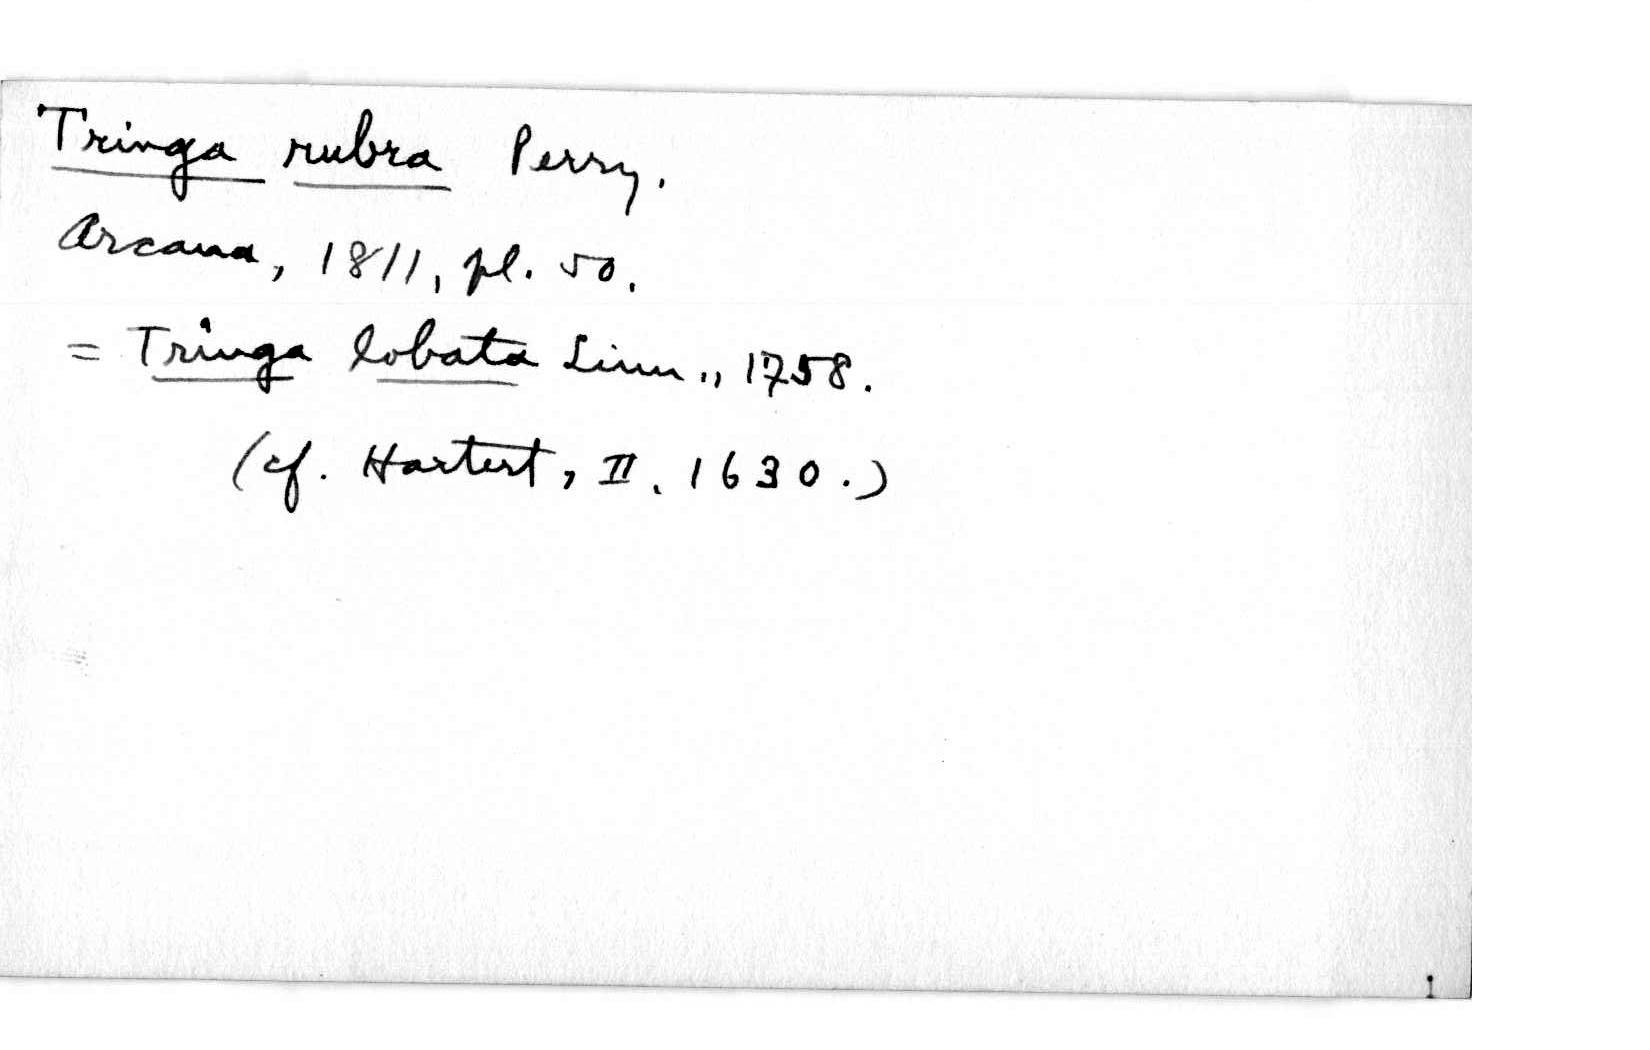 Tringa rubra Perry.
Arcana, 1811, pl. 50.
= Tringa lobata Linn., 1758.
(cf. Hartert, II. 1630.)